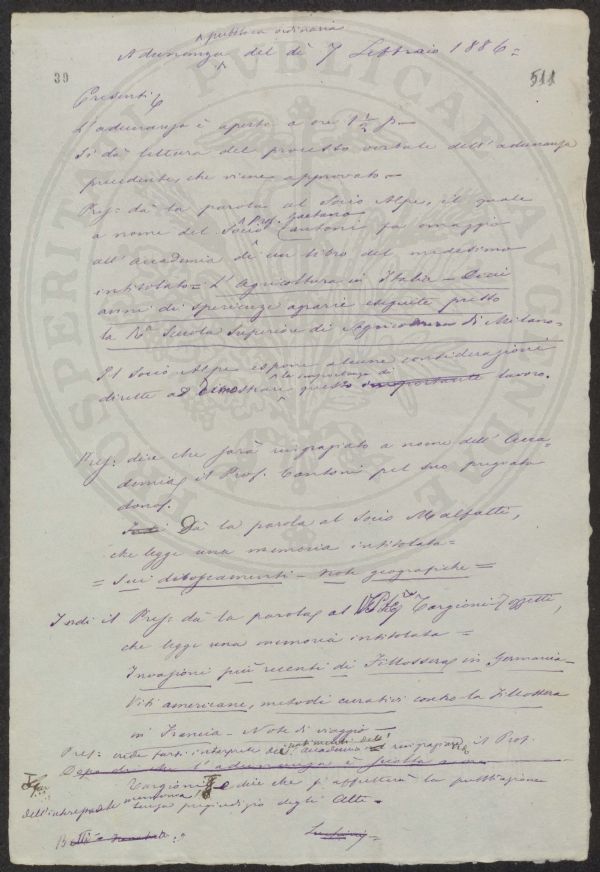 pubblica ordinaria
Adunanza del dì 7 Febbraio 1886=
39
511
Presenti
L'adunanza è aperta a ore 1 1/2 p—
Si dà lettura del processo verbale dell'adunanza
precedente, che viene approvato—
Pres: dà la parola al Socio Alpe, il quale
Prof. Gaetano
a nome del Socio Cantoni fa omaggio
all'Accademia di un libro del medesimo
intitolato= L'Agricoltura in Italia— Dieci
anni di sperienze agrarie eseguite presso
la R.a Scuola Superiore di Agricoltura di Milano=
Il Socio Alpe espone alcune considerazioni
la importanza di
dirette a dimostrare questo importante lavoro.
Pres: dice che sarà ringraziato a nome dell'Acca-
demia il Prof. Cantoni pel suo pregiato
dono.
Indi Dà la parola al Socio Malfatti,
che legge una memoria intitolata=
= Sui diboscamenti— note geografiche=
Indi il Pres: dà la parola al Targioni-Tozzetti,
che legge una memoria intitolata=
Invasioni più recenti di Fillossera in Germania—
Viti americane, metodi curativi contro la Fillossera
in Francia— Note di viaggio—
Pres: crede farsi interprete dei sentimenti dell'Accademia ringraziando il Prof.
Dopo di che l'adunanza è sciolta a ore
Targioni e dice che s'affretterà la pubblicazione
dell'interessante memoria senza pregiudizio degli Atti.